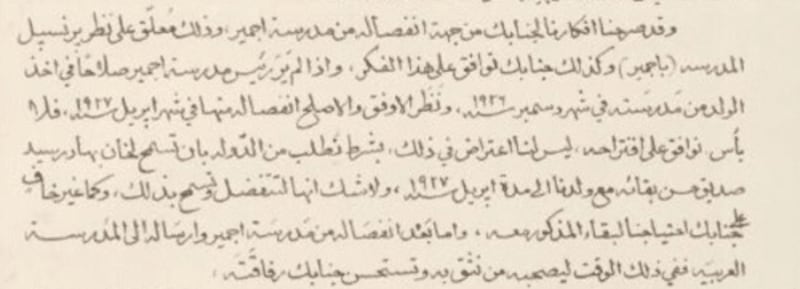 وقد صرحنا افكارنا لجنابك من جهة انفصاله من مدرسة اجمير، وذلك معلّق على نظر برنسيپل
المدرسه (باجمير) وكذلك جنابك توافق على هذا الفكر، واذا لم يَرَ رئيس مدرسة اجمير صلاحًا في اخذ
الولد من مَدرَسَته في شهر دسمبر سنة ١٩٢٦، ونَظَر الاوفق والاصلح انفصاله منها في شهر ابريل سنة ١٩٢٧، فلا
بأس نوافق على اقتراحه، ليس لنا اعتراض في ذلك، بشرط نطلب من الدّوله بان تسمح لخان بهادر سيد
صديق حسن بقائه مع ولدنا الى مدة ابريل سنة ١٩٢٧، ولا شك انها لتتفضل وتسمح بذلك، وكما غير خافٍ
على جنابك احتياجنا لبقاء المذكور معه، واما بَعْد انفصَاله من مَدرَسَة اجمير وارسَاله الى المَدرسة
العربيَه ففي ذلك الوقت ليصحبه من نثق به وتستحسن جنابك رفاقَتَه،